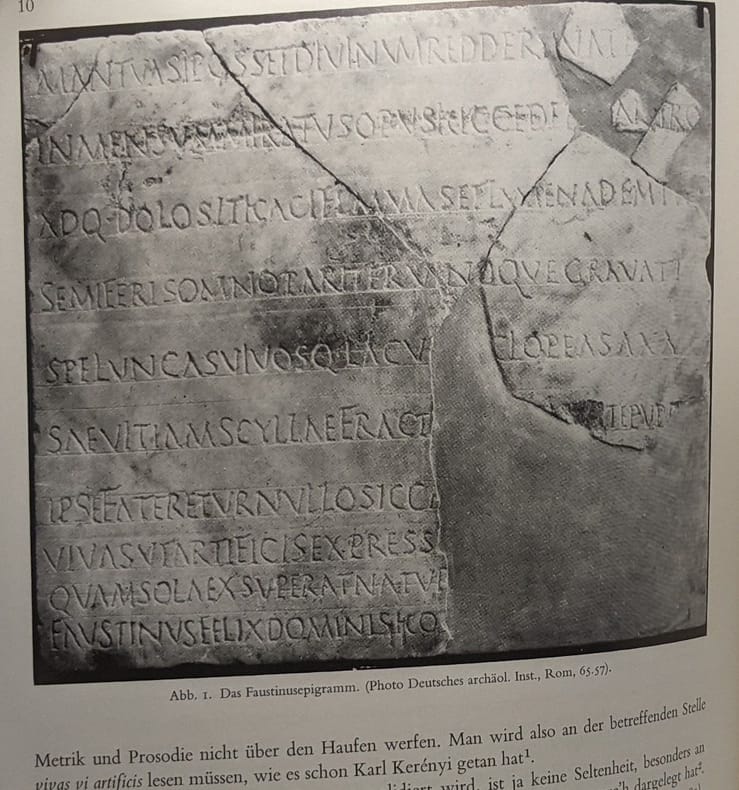 10
MANTVA SI POSSET DIVINVM REDDERE VATE
INMENSVM MIRATVS OPVS HIC CEDERE ANTRO
ADQ DOLOS ITHACI FLAMMAS ET LVMEN ADEMT
SEMIFERI SOMNO PARITER VINOQVE GRAVATI
SPELVNCAS VIVOSQ LACV CLOPEA SAXA
SAEVITIAM SCYLLAE FRACT
IPSE FATERETVR NVLLO SIC C
VIVAS VT ARTIFICIS EXPRESS
QVAM SOLA EXSVPERAT NATV
FAVSTINVS FELIX DOMINIS HO
Abb. 1. Das Faustinusepigramm. (Photo Deutsches archäol. Inst., Rom, 65.57).
Metrik und Prosodie nicht über den Haufen werfen. Man wird also an der betreffenden Stelle
vivas vi artificis lesen müssen, wie es schon Karl Kerényi getan hat¹.
wird, ist ja keine Seltenheit, besonders an
dargelegt hat².